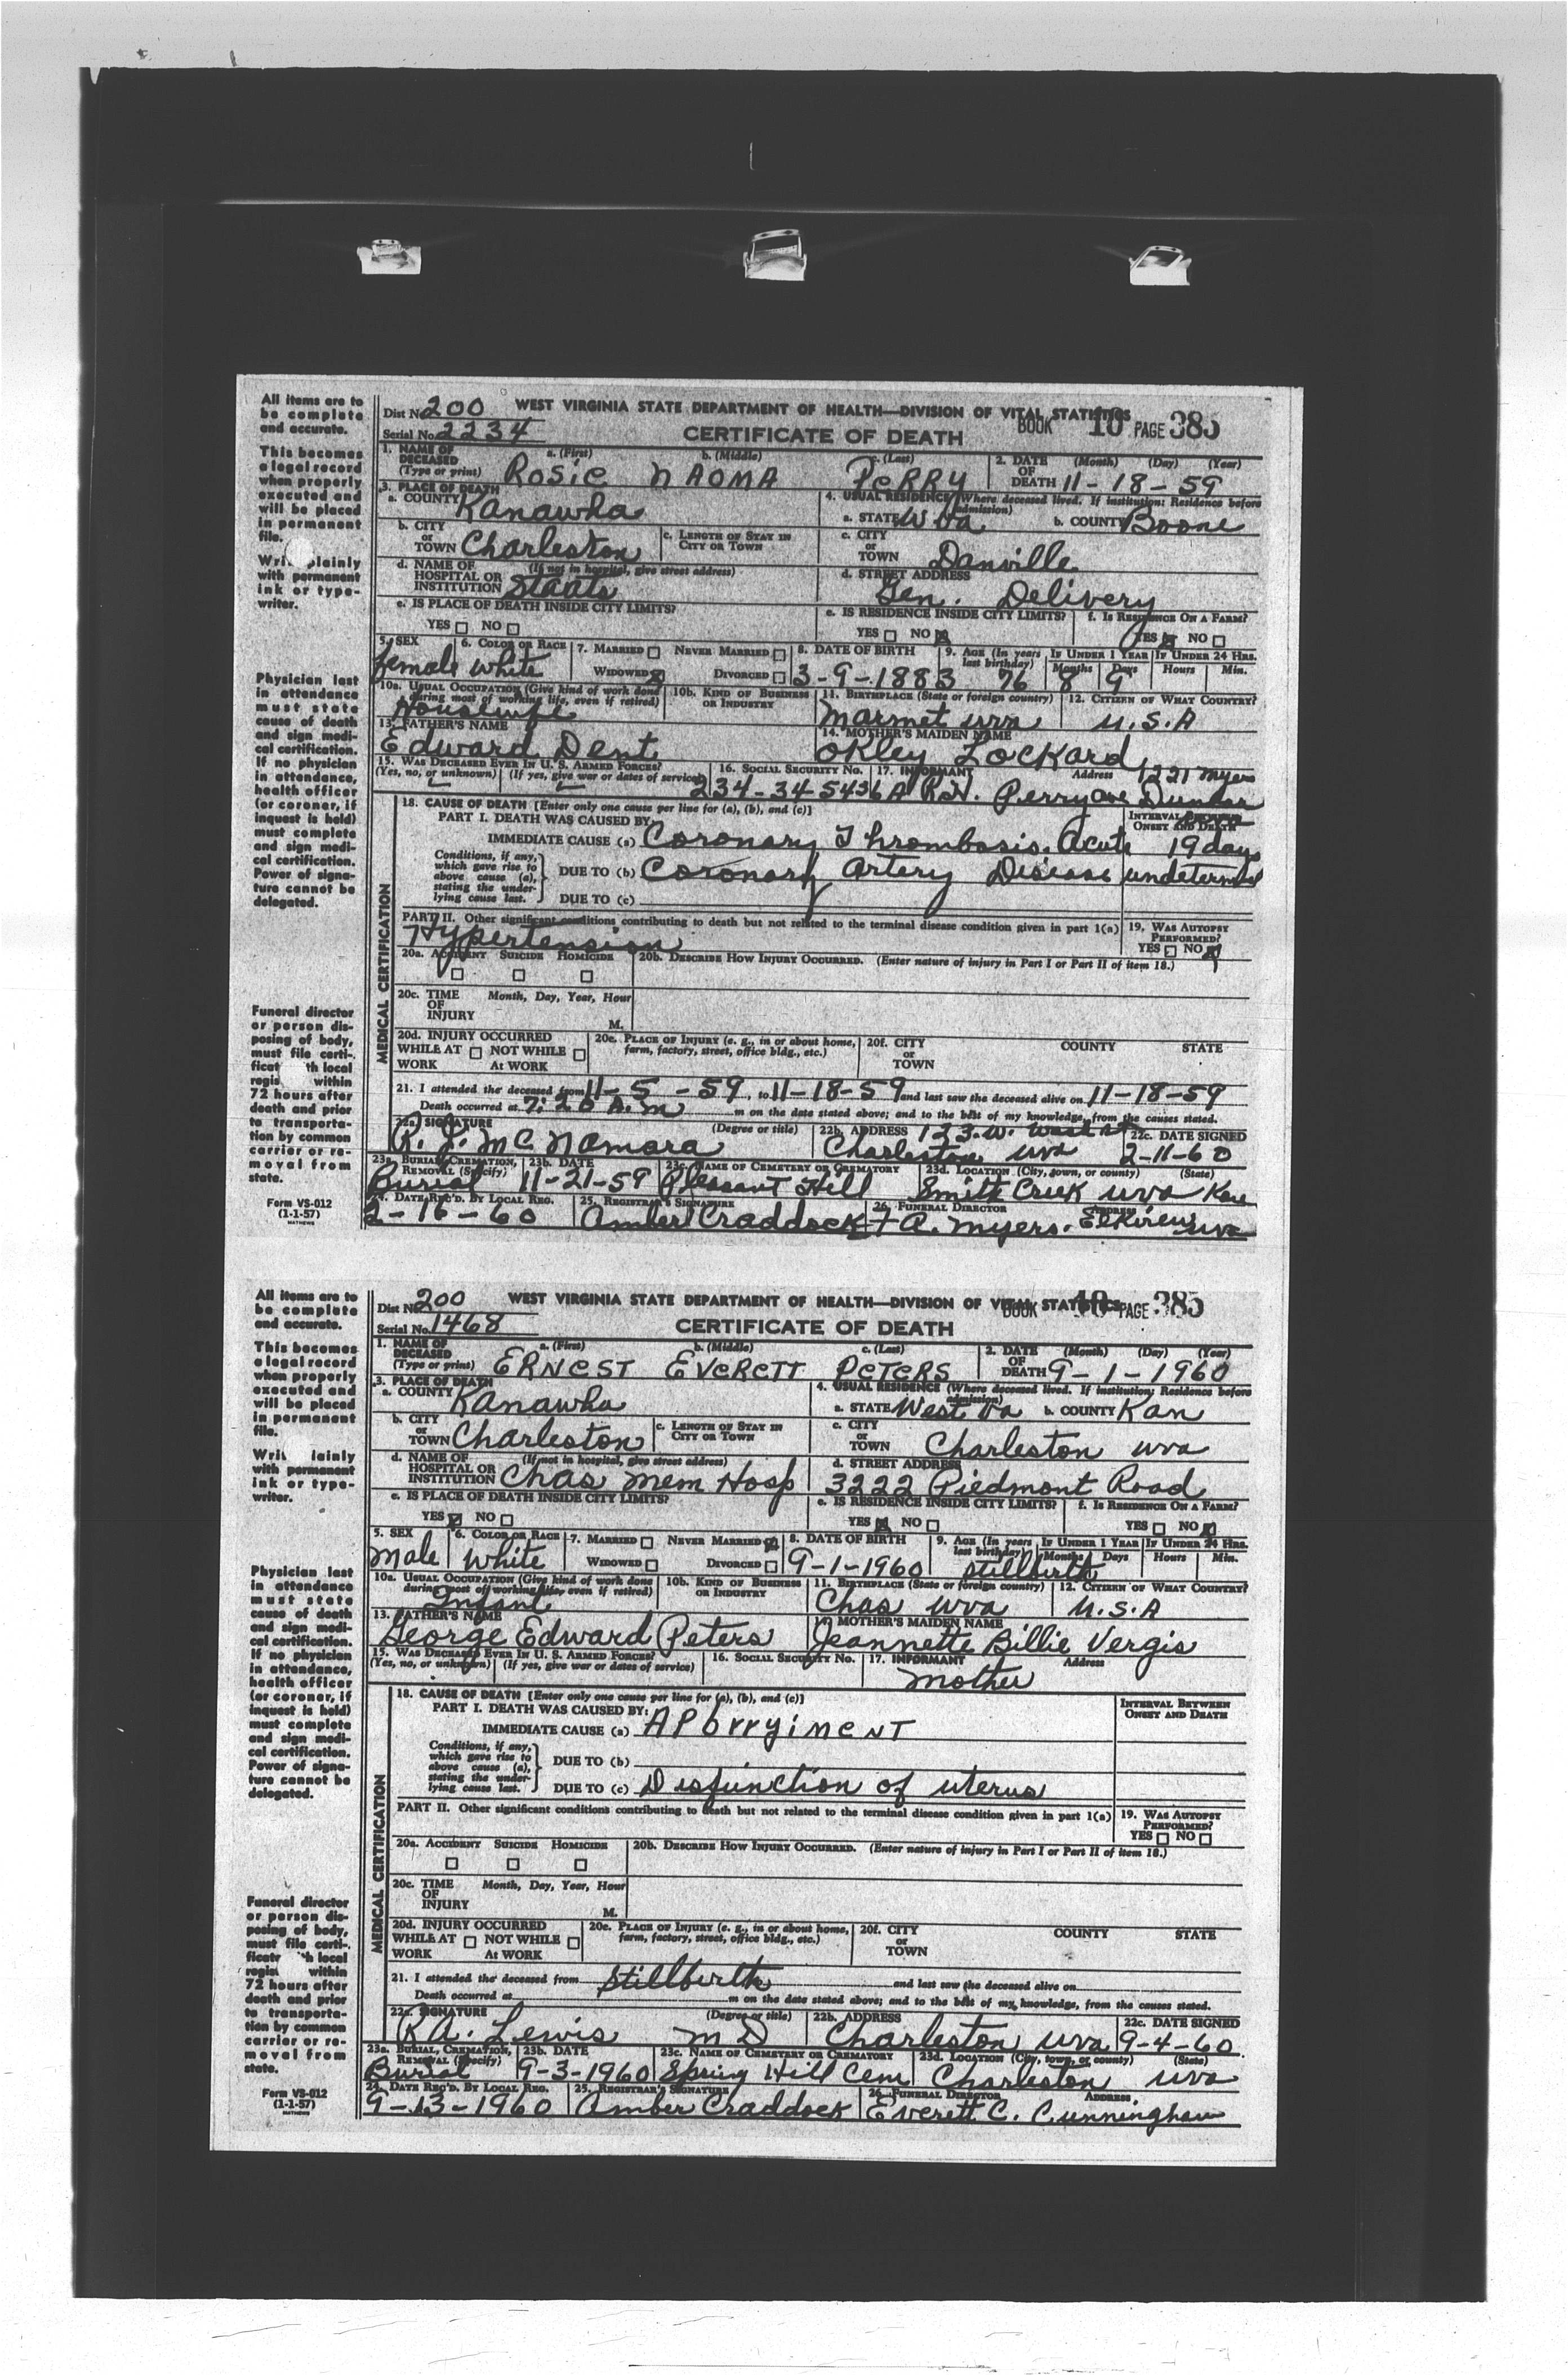 All items are to
be complete
and accurate.
This becomes
a legal record
when properly
executed and
will be placed
in permanent
file.
plainly
with permanent
ink or type-
writer.
Physician last
in attendance
must state
cause of death
and sign medi-
cal certification.
If no physician
in attendance,
health officer
(or coroner, if
inquest is held)
must complete
and sign medi-
cal certification.
Power of signa-
ture cannot be
delegated.
Funeral director
or person dis-
posing of body,
must file certi-
th local
within
72 hours after
death and prior
to transporta-
tion by common
carrier or re-
moval from
state.
Form VS-012
(1-1-57)
MATHEWS
Dist No. 200 WEST VIRGINIA STATE DEPARTMENT OF HEALTH—DIVISION OF VITAL STATISTICS
BOOK 10 PAGE 385
Serial No. 2234 CERTIFICATE OF DEATH
1. NAME OF DECEASED (Type or print) a. (First) b. (Middle) c. (Last) 2. DATE OF DEATH (Month) (Day) (Year)
Rosie NAOMA PERRY 11-18-59
3. PLACE OF DEATH 4. USUAL RESIDENCE (Where deceased lived. If institution: Residence before admission)
a. COUNTY Kanawha a. STATE W Va. b. COUNTY Boone
b. CITY or TOWN Charleston c. LENGTH OF STAY IN CITY OR TOWN c. CITY or TOWN Danville
d. NAME OF HOSPITAL OR INSTITUTION (If not in hospital, give street address) Staats d. STREET ADDRESS Gen. Delivery
e. IS PLACE OF DEATH INSIDE CITY LIMITS? e. IS RESIDENCE INSIDE CITY LIMITS? f. IS RESIDENCE ON A FARM?
YES NO YES NO YES NO
5. SEX 6. COLOR OR RACE 7. MARRIED NEVER MARRIED 8. DATE OF BIRTH 9. AGE (In years last birthday) IF UNDER 1 YEAR IF UNDER 24 HRS.
Months Days Hours Min.
female white WIDOWED DIVORCED 3-9-1883 76 8 9
10a. USUAL OCCUPATION (Give kind of work done during most of working life, even if retired) 10b. KIND OF BUSINESS OR INDUSTRY 11. BIRTHPLACE (State or foreign country) 12. CITIZEN OF WHAT COUNTRY?
Housewife Marmet wva U.S.A
13. FATHER'S NAME 14. MOTHER'S MAIDEN NAME
Edward Dent Okley Lockard
15. WAS DECEASED EVER IN U. S. ARMED FORCES? (Yes, no, or unknown) (If yes, give war or dates of service) 16. SOCIAL SECURITY NO. 17. INFORMANT Address
1221 Myers
234-34-5436A R.H. Perry ave Dunbar
18. CAUSE OF DEATH [Enter only one cause per line for (a), (b), and (c)] INTERVAL BETWEEN ONSET AND DEATH
PART I. DEATH WAS CAUSED BY:
IMMEDIATE CAUSE (a) Coronary Thrombosis. Acute 19 days
Conditions, if any, which gave rise to above cause (a), stating the underlying cause last.
DUE TO (b) Coronary Artery Disease
DUE TO (c)
PART II. Other significant conditions contributing to death but not related to the terminal disease condition given in part 1(a) 19. WAS AUTOPSY PERFORMED?
Hypertension YES NO
20a. ACCIDENT SUICIDE HOMICIDE 20b. DESCRIBE HOW INJURY OCCURRED. (Enter nature of injury in Part I or Part II of item 18.)
20c. TIME OF INJURY Month, Day, Year, Hour
M.
20d. INJURY OCCURRED 20e. PLACE OF INJURY (e. g., in or about home, farm, factory, street, office bldg., etc.) 20f. CITY or TOWN COUNTY STATE
WHILE AT WORK NOT WHILE At WORK
MEDICAL CERTIFICATION
21. I attended the deceased from 11-5-59, to 11-18-59 and last saw the deceased alive on 11-18-59
Death occurred at 7:20 A.m m on the date stated above; and to the best of my knowledge, from the causes stated.
22a. SIGNATURE (Degree or title) 22b. ADDRESS 22c. DATE SIGNED
R. J. McNamara 123 W. Charleston wva 2-11-60
23a. BURIAL, CREMATION, REMOVAL (Specify) 23b. DATE 23c. NAME OF CEMETERY OR CREMATORY 23d. LOCATION (City, town, or county) (State)
Burial 11-21-59 Pleasant Hill Smith Creek wva Kan
24. DATE REC'D. BY LOCAL REG. 25. REGISTRAR'S SIGNATURE 26. FUNERAL DIRECTOR ADDRESS
2-16-60 Amber Craddock A. Myers. wva
All items are to
be complete
and accurate.
This becomes
a legal record
when properly
executed and
will be placed
in permanent
file.
lainly
with permanent
ink or type-
writer.
Physician last
in attendance
must state
cause of death
and sign medi-
cal certification.
If no physician
in attendance,
health officer
(or coroner, if
inquest is held)
must complete
and sign medi-
cal certification.
Power of signa-
ture cannot be
delegated.
Funeral director
or person dis-
posing of body,
must file certi-
h local
within
72 hours after
death and prior
to transporta-
tion by common
carrier or re-
moval from
state.
Form VS-012
(1-1-57)
MATHEWS
Dist No. 200 WEST VIRGINIA STATE DEPARTMENT OF HEALTH—DIVISION OF VITAL STATISTICS
BOOK 10 PAGE 385
Serial No. 1468 CERTIFICATE OF DEATH
1. NAME OF DECEASED (Type or print) a. (First) b. (Middle) c. (Last) 2. DATE OF DEATH (Month) (Day) (Year)
ERNEST EVERETT PETERS 9-1-1960
3. PLACE OF DEATH 4. USUAL RESIDENCE (Where deceased lived. If institution: Residence before admission)
a. COUNTY Kanawha a. STATE West Va b. COUNTY Kan
b. CITY or TOWN Charleston c. LENGTH OF STAY IN CITY OR TOWN c. CITY or TOWN Charleston wva
d. NAME OF HOSPITAL OR INSTITUTION (If not in hospital, give street address) Chas Mem Hosp d. STREET ADDRESS 3222 Piedmont Road
e. IS PLACE OF DEATH INSIDE CITY LIMITS? e. IS RESIDENCE INSIDE CITY LIMITS? f. IS RESIDENCE ON A FARM?
YES NO YES NO YES NO
5. SEX 6. COLOR OR RACE 7. MARRIED NEVER MARRIED 8. DATE OF BIRTH 9. AGE (In years last birthday) IF UNDER 1 YEAR IF UNDER 24 HRS.
Months Days Hours Min.
Male White WIDOWED DIVORCED 9-1-1960 stillbirth
10a. USUAL OCCUPATION (Give kind of work done during most of working life, even if retired) 10b. KIND OF BUSINESS OR INDUSTRY 11. BIRTHPLACE (State or foreign country) 12. CITIZEN OF WHAT COUNTRY?
Infant Chas wva U.S.A
13. FATHER'S NAME 14. MOTHER'S MAIDEN NAME
George Edward Peters Jeannette Billie Vergis
15. WAS DECEASED EVER IN U. S. ARMED FORCES? (Yes, no, or unknown) (If yes, give war or dates of service) 16. SOCIAL SECURITY NO. 17. INFORMANT Address
Mother
18. CAUSE OF DEATH [Enter only one cause per line for (a), (b), and (c)] INTERVAL BETWEEN ONSET AND DEATH
PART I. DEATH WAS CAUSED BY:
IMMEDIATE CAUSE (a)
Conditions, if any, which gave rise to above cause (a), stating the underlying cause last.
DUE TO (b)
DUE TO (c) Disfunction of uterus
PART II. Other significant conditions contributing to death but not related to the terminal disease condition given in part 1(a) 19. WAS AUTOPSY PERFORMED?
YES NO
20a. ACCIDENT SUICIDE HOMICIDE 20b. DESCRIBE HOW INJURY OCCURRED. (Enter nature of injury in Part I or Part II of item 18.)
20c. TIME OF INJURY Month, Day, Year, Hour
M.
20d. INJURY OCCURRED 20e. PLACE OF INJURY (e. g., in or about home, farm, factory, street, office bldg., etc.) 20f. CITY or TOWN COUNTY STATE
WHILE AT WORK NOT WHILE At WORK
MEDICAL CERTIFICATION
21. I attended the deceased from Stillbirth and last saw the deceased alive on
Death occurred at m on the date stated above; and to the best of my knowledge, from the causes stated.
22a. SIGNATURE (Degree or title) 22b. ADDRESS 22c. DATE SIGNED
RA. Lewis MD Charleston wva 9-4-60
23a. BURIAL, CREMATION, REMOVAL (Specify) 23b. DATE 23c. NAME OF CEMETERY OR CREMATORY 23d. LOCATION (City, town, or county) (State)
Burial 9-3-1960 Spring Hill Cem Charleston wva
24. DATE REC'D. BY LOCAL REG. 25. REGISTRAR'S SIGNATURE 26. FUNERAL DIRECTOR ADDRESS
9-13-1960 Amber Craddock Everett C. Cunningham